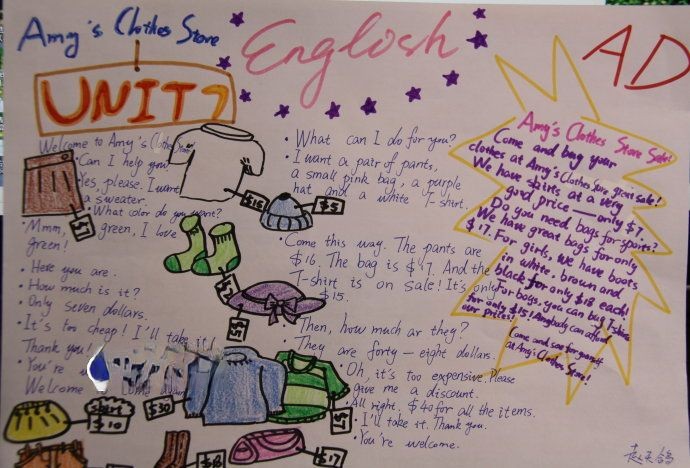 Amy's Clothes Store
Englosh
AD
UNIT7
Welcome to Amy's Clothes
Can I help you
Yes, please. I want
a sweater.
What color do you want?
Mmm, green, I love
green!
Here you are.
How much is it?
Only seven dollars.
It's too cheap! I'll take it!
Thank you!
You're
Welcome
What can I do for you?
I want a pair of pants,
a small pink bag, a purple
hat and a white T-shirt.
Come this way. The pants are
$16. The bag is $17. And the
T-shirt is on sale! It's only
$15.
Then, how much ar they?
They are forty-eight dollars.
Oh, it's too expensive. Please
give me a discount.
All right. $40 for all the items.
I'll take it. Thank you.
You're welcome.
Amy's Clothes Store Sale!
Come and buy your
clothes at Amy's Clothes Store great sale!
We have shirts at a very
good price — only $7.
Do you need bags for sports?
We have great bags for only
$17. For girls, we have boots
in white, brown and
black for only $18 each!
For boys, you can buy T-shirts
for only $15! Anybody can afford
our prices!
Come and see for yourself
at Amy's Clothes Store!
$7
$15
$5
$30
skirt
$10
$18
$17